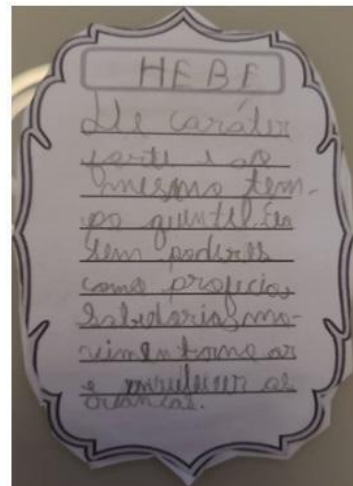 HEBE
De caráter
forte e ao
mesmo tem-
po gentil. Ela
tem poderes
como profecia,
Sabedoria, mo-
vimento no ar
e as
crianças.